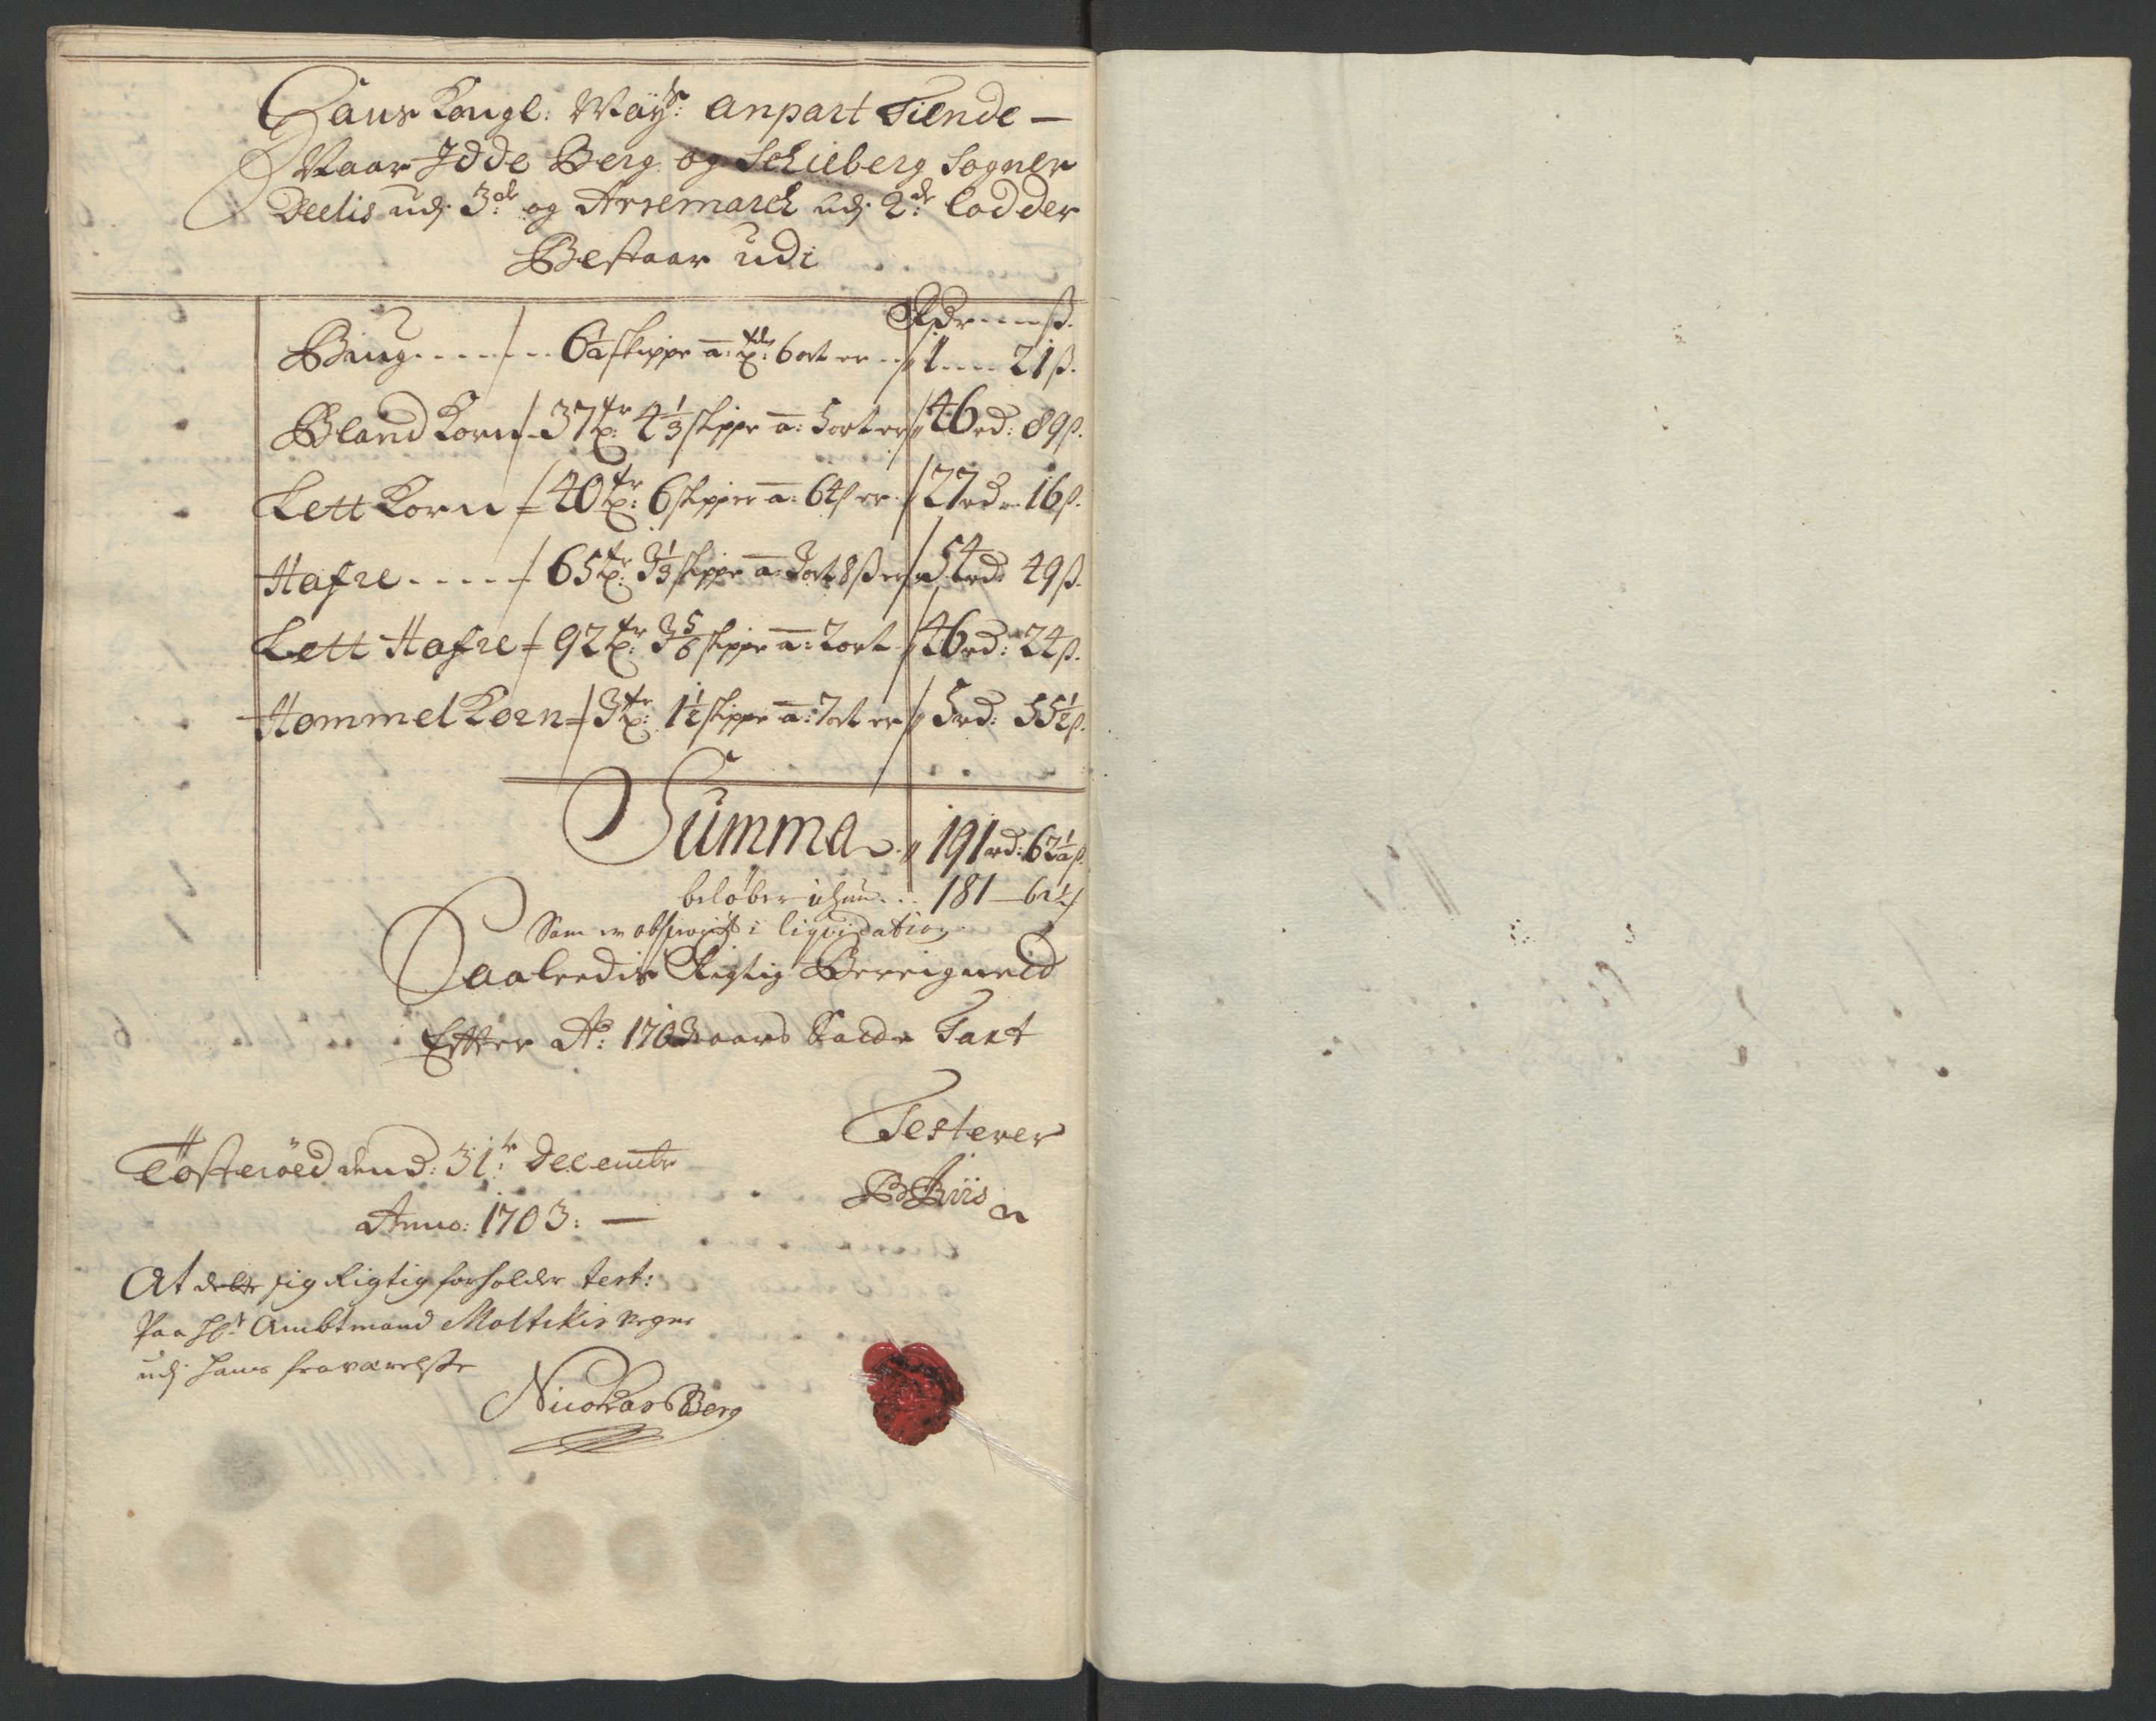 Hans Kongl: Mayts: Anpart Tiende —
Naar Idde Berg og Schieberg Sogner
Deelis udj 3de og Arremarck udj 2de lodder
Bestaar udi
Rdr --- ß.
Biug . . . . . . . 6½ skippe a: tde 6 ort er .. 1 .... 21 ß.
Bland Korn 37 tr: 4⅓ skippe a: 5 ort er 46 rd: 89 ß.
Lett Korn 40 tr: 6 skipper a: 64 ß er 27 rd 16 ß.
Hafre . . . . . 65 tr: 3⅓ skippe a 3 ort 8 ß er 54 rd 49 ß.
Lett Hafre 92 tr: 3⅚ skippe a: 2 ort 46 rd: 24 ß.
Hommel Korn 3 tr: 1½ skippe a: 7 ort er 5 rd: 55½ ß.
Summa 191 rd: 62½ ß.
beløber ichun ... 181 — 62½ ß
Som er observerit i liqvidation
Saaledis Rigtig Bereigneid
Efter Ao: 1703 aars Satde Taxt
Testerer
Tøsterøed dend: 31te Decembr
Anno: 1703: —
At dette sig Rigtig forholder test:
Paa Hr Ambtmand Moltekis vegne
udj hans fraværelse
Nicolas Berg